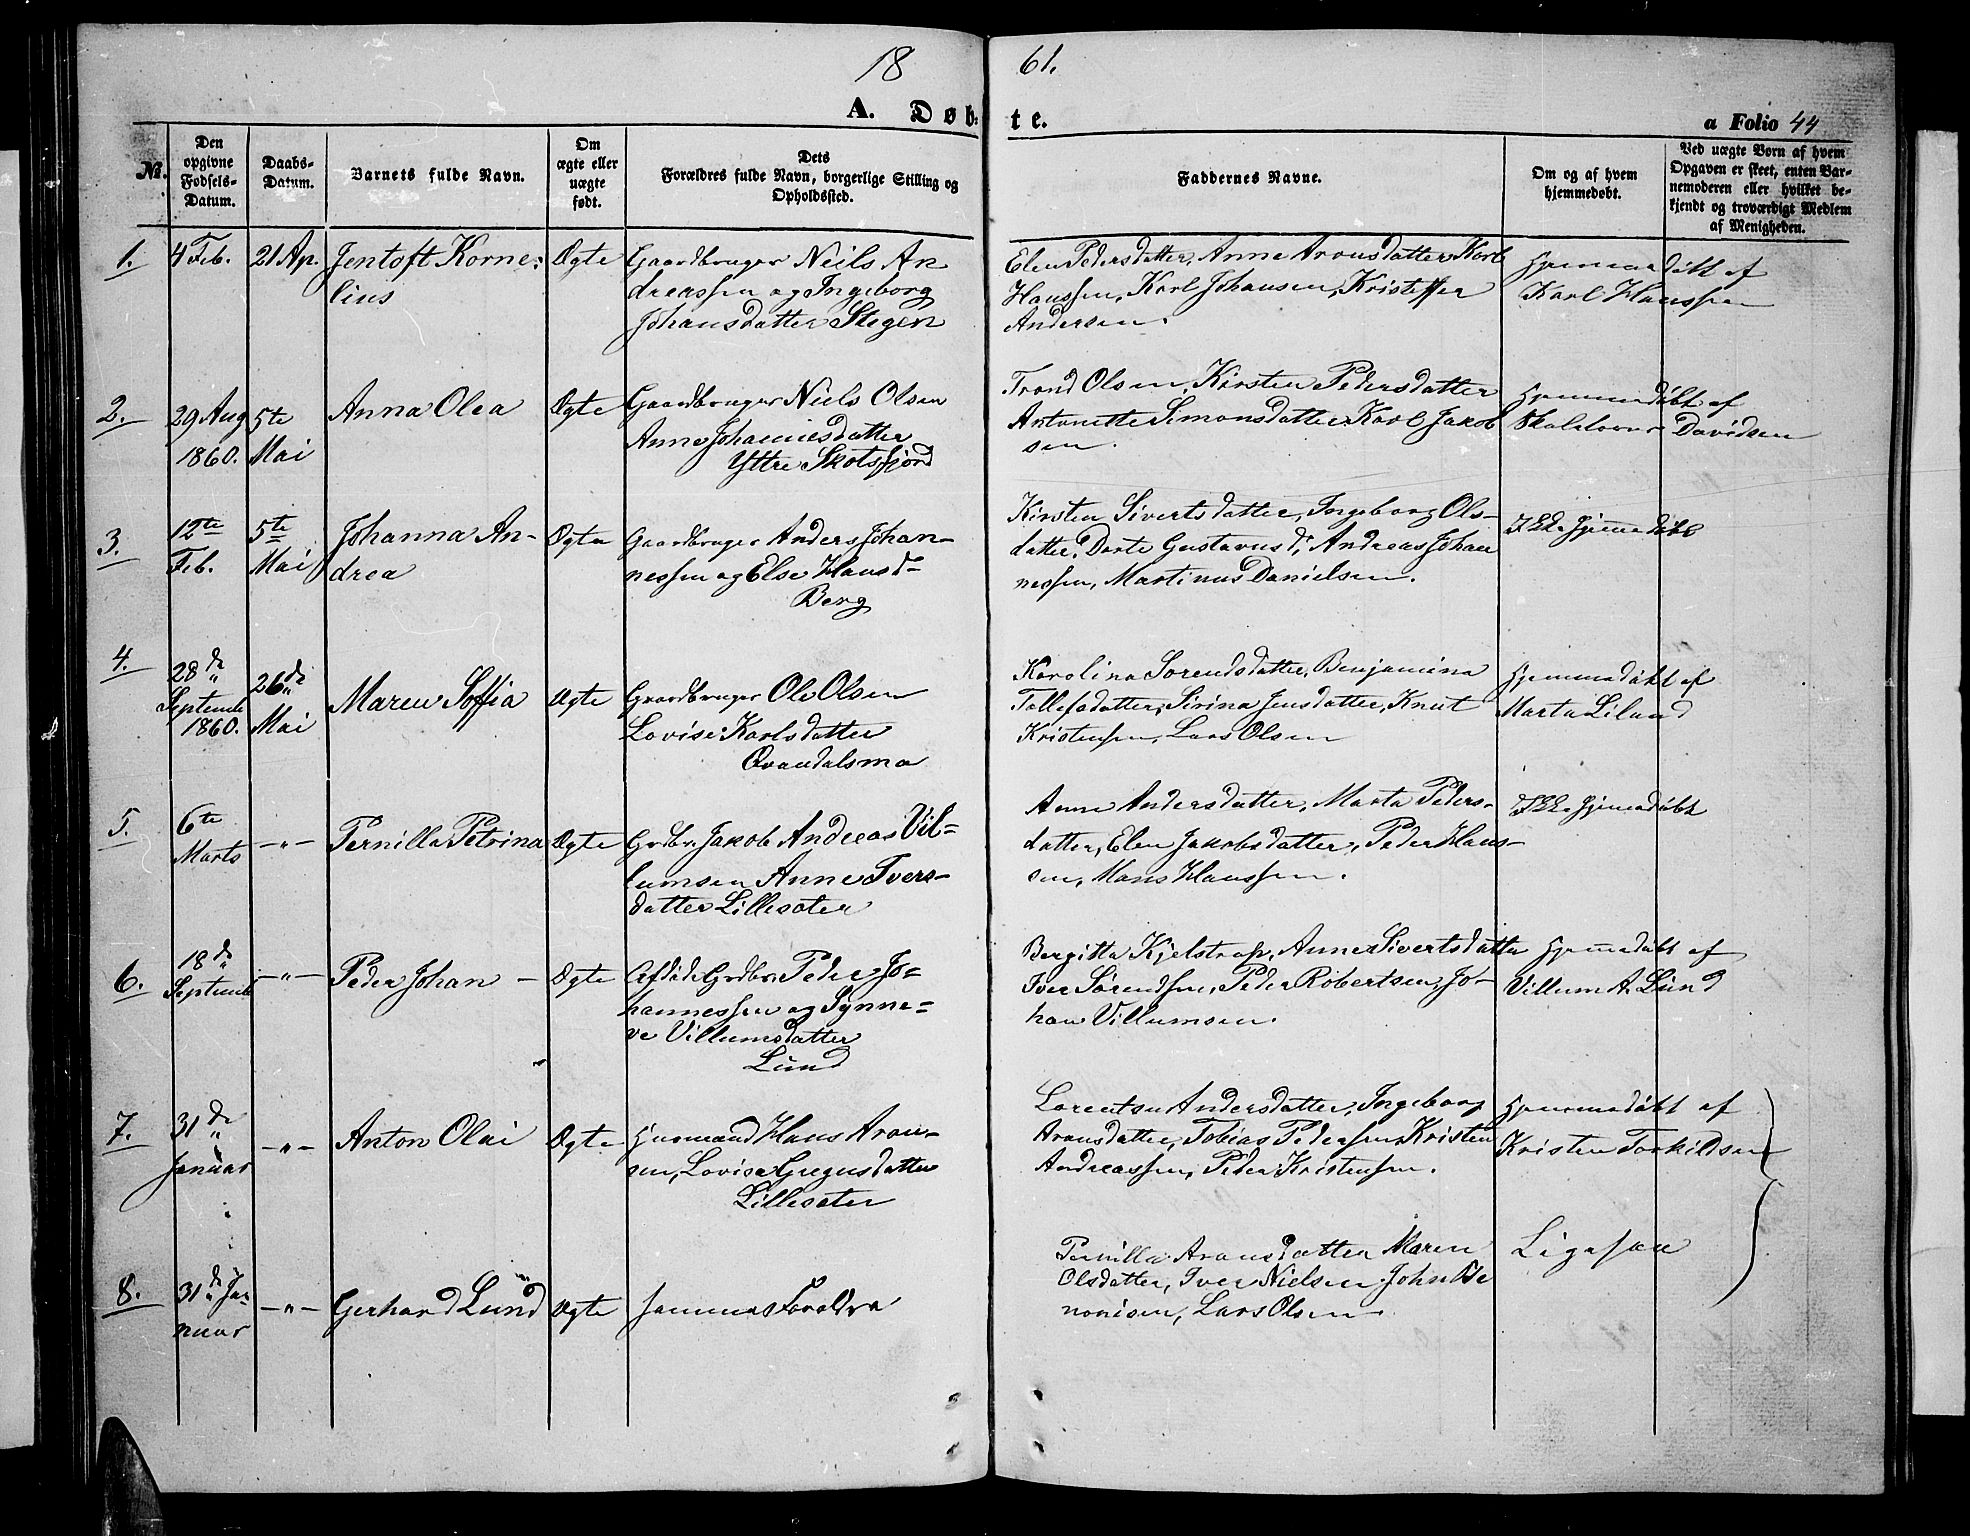 18 61.
A. Døb- te. a Folio 44
No. Den opgivne Fødsels-Datum. Daabs-Datum. Barnets fulde Navn. Om ægte eller uægte født. Dets Forældres fulde Navn, borgerlige Stilling og Opholdssted. Faddernes Navne. Om og af hvem hjemmedøbt. Ved uægte Børn af hvem Opgaven er skeet, enten Barnemoderen eller hvilket bekjendt og troværdigt Medlem af Menigheden.
1. 4 Feb. 21 Ap. Jentoft Korne: Ægte Gaardbruger Neils An
lius dreassen og Ingeborg
Johansdatter Stegen
Elen Pedersdatter, Anne Aronsdatter, Karl
Hanssen, Karl Johansen, Kristoffer
Andersen.
Hjemmedøbt af
Karl Hanssen
2. 29 Aug 5te Anna Olea Ægte Gaardbruger Niels Olsen
1860. Mai Anne Johannesdatter
Yttre Skotsfjord
Trond Olsen, Kirsten Pedersdatter
Antonette Simonsdatter, Karl Jakob
sen.
Hjemmedøbt af
Skolelærer Davidsen
3. 12te 5te Johanna An- Ægte Gaardbruger Anders Johan-
Feb. Mai drea nessen og Else Hansd-
Berg
Kirsten Sivertsdatter, Ingeborg Ols-
datter, Dorte Gustavusd, Andreas Johan
nessen, Martinus Danielsen.
Ikke Hjemmedøbt
4. 28de 26de Maren Soffia Ægte Gaardbruger Ole Olsen
Septemb Mai Lovise Karlsdatter
1860. Qvandalsmo
Karolina Sørendsdatter, Benjamina
Tollefsdatter, Sirina Jensdatter, Knut
Kristensen, Lars Olsen
Hjemmedøbt af
Marta Liland
5. 6te -"- Pernilla Petrina Ægte Grdbr. Jakob Andreas Vil=
Marts lumsen Anne Ivers-
datter Lillesæter
Anne Andersdatter, Marta Peders-
datter, Elen Jakobsdatter, Peder Hans-
sen, Mons Hanssen.
Ikke Hjemmedøbt
6. 18de -"- Peder Johan - Ægte Afdøde Grdbr. Peder Jo=
Septemb hannessen og Synne=
ve Villumsdatter
Lund
Bergitta Kjelstrup, Anne Sivertsdatter
Iver Sørendsen, Peder Robertsen, Jo-
han Villumsen.
Hjemmedøbt af
Villum A. Lund
7. 31de -"- Anton Olai Ægte Husmand Hans Aron-
Januar sen, Lovise Gregusdatter
Lillesæter
Lorentse Andersdatter, Ingeborg
Aronsdatter, Tobias Pedersen, Kristen
Andreassen, Peder Kristensen.
Hjemmedøbt af
Kristen Torkildsen
8. 31de Ja- -"- Gerhard Lund Ægte Sammes Forældre
nuar
Pernilla Aronsdatter Maren
Olsdatter, Iver Nielsen, John Be
nonisen, Lars Olsen
Ligesaa